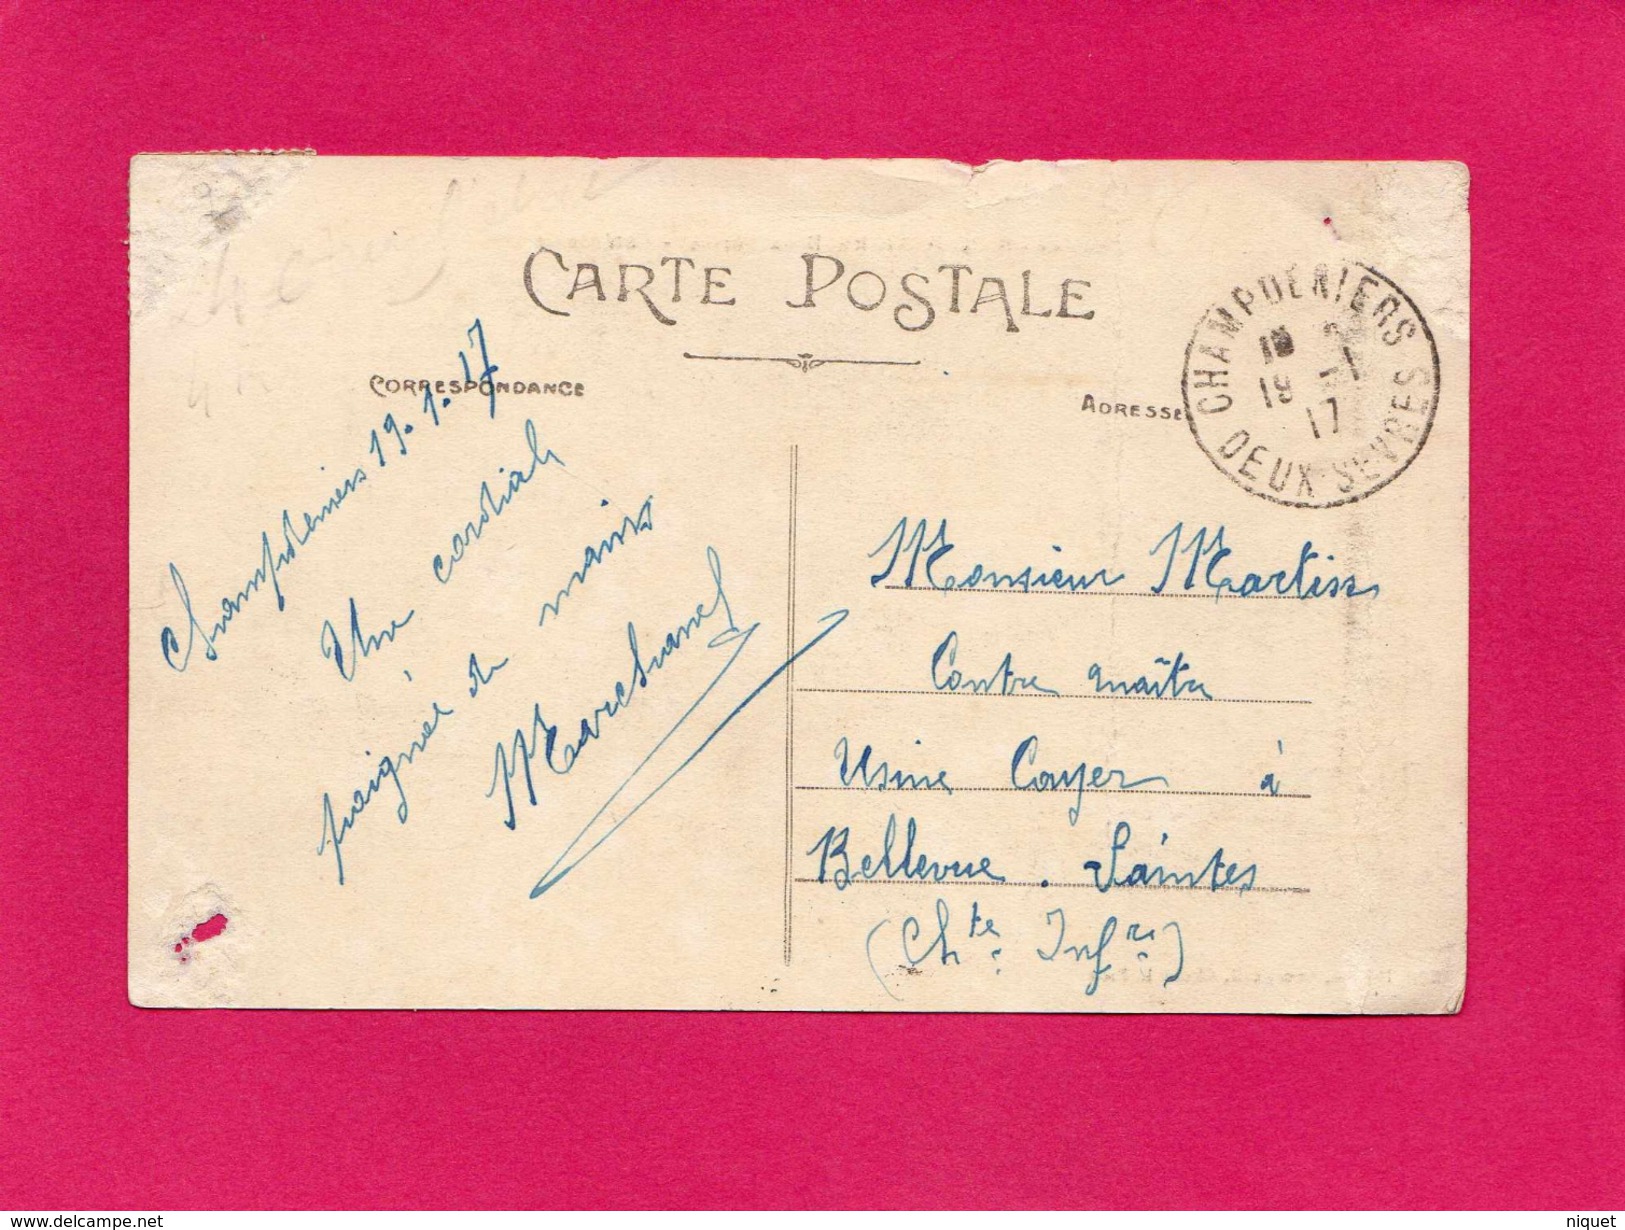 CARTE POSTALE
CORRESPONDANCE
ADRESSE
CHAMPDENIERS
19 -1
17
DEUX-SEVRES
Champdeniers 19.1.17
Une cordiale
poignée de mains
Monsieur Martin
Contre maître
Usine Coyer à
Bellevue. Saintes
(Chte. Infre)
www.delcampe.net
niquet